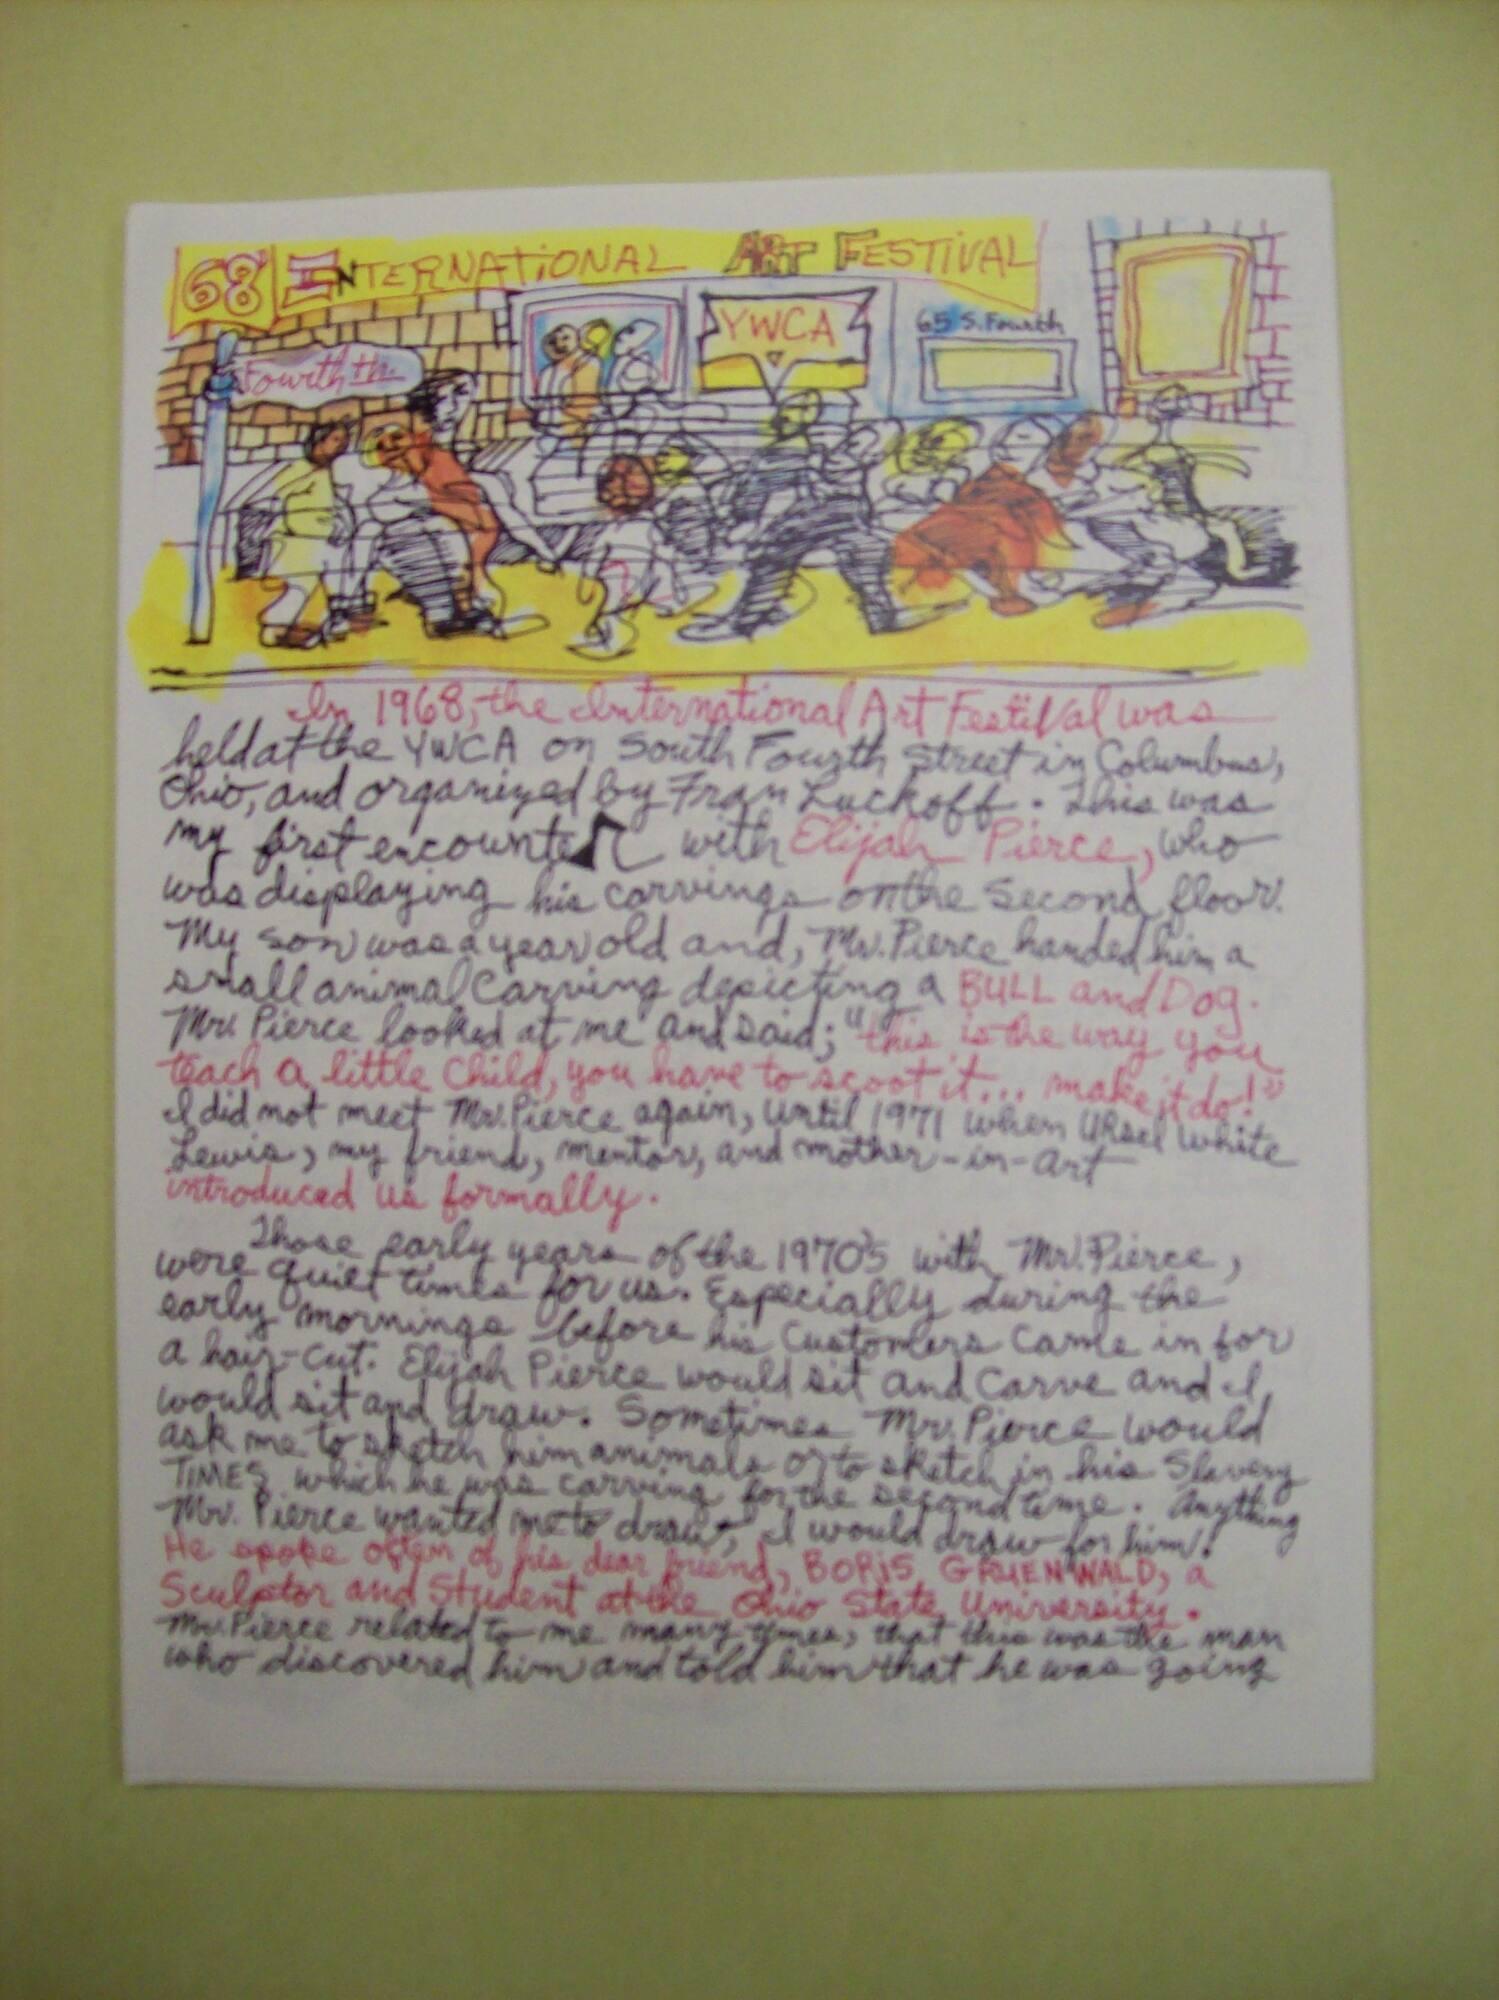 68 International Art Festival
YWCA
65 S. Fourth
Fourth th.
In 1968, the International Art Festival was
held at the YWCA on South Fourth Street in Columbus,
Ohio, and organized by Fran Luckoff. This was
my first encounter with Elijah Pierce, who
was displaying his carvings on the second floor.
My son was a year old and, Mr. Pierce handed him a
small animal carving depicting a BULL and Dog.
Mr. Pierce looked at me and said; "this is the way you
teach a little child, you have to scoot it... make it do!"
I did not meet Mr. Pierce again, until 1971 when Ursel White
Lewis, my friend, mentor, and mother-in-Art
introduced us formally.
Those early years of the 1970's with Mr. Pierce,
were quiet times for us. Especially during the
early mornings before his customers came in for
a hair-cut. Elijah Pierce would sit and carve and I
would sit and draw. Sometimes Mr. Pierce would
ask me to sketch him animals or to sketch in his Slavery
TIMES which he was carving for the second time. Anything
Mr. Pierce wanted me to draw, I would draw for him!
He spoke often of his dear friend, BORIS GRUENWALD, a
Sculptor and Student at the Ohio State University.
Mr. Pierce related to me many times, that this was the man
who discovered him and told him that he was going